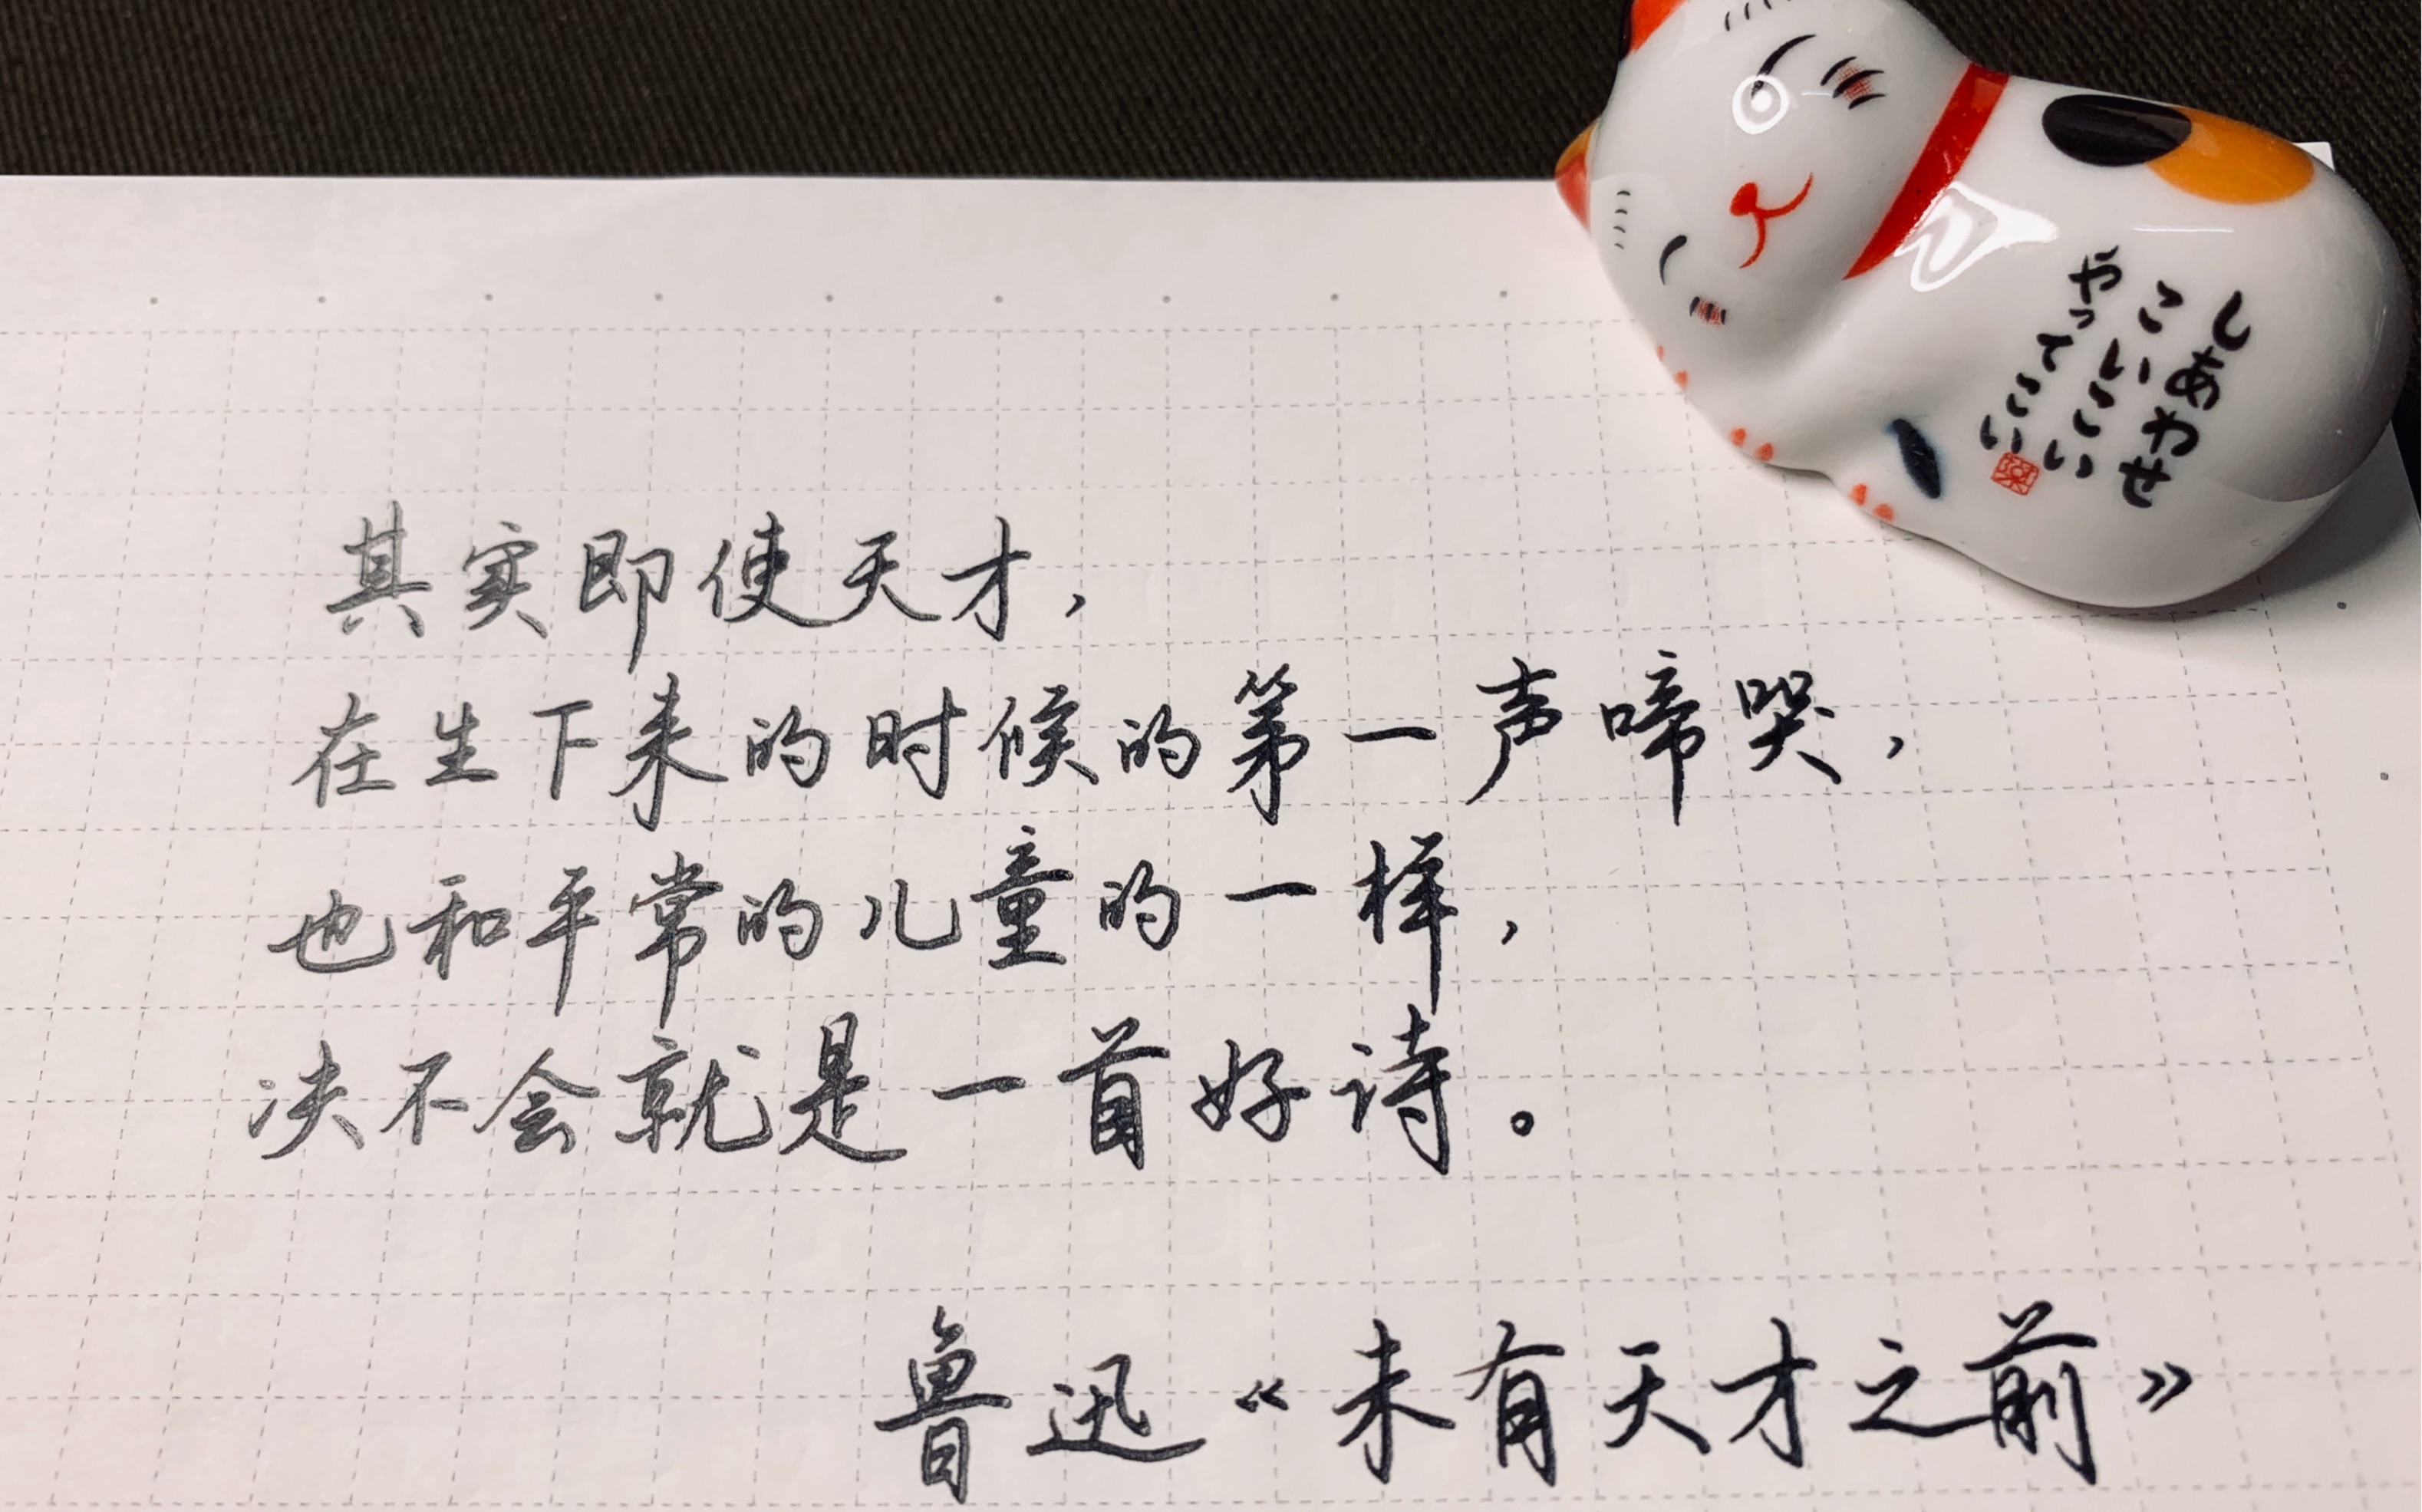 其实即使天才，
在生下来的时候的第一声啼哭，
也和平常的儿童的一样，
决不会就是一首好诗。
鲁迅《未有天才之前》
しあわせ
こいこい
やってこい